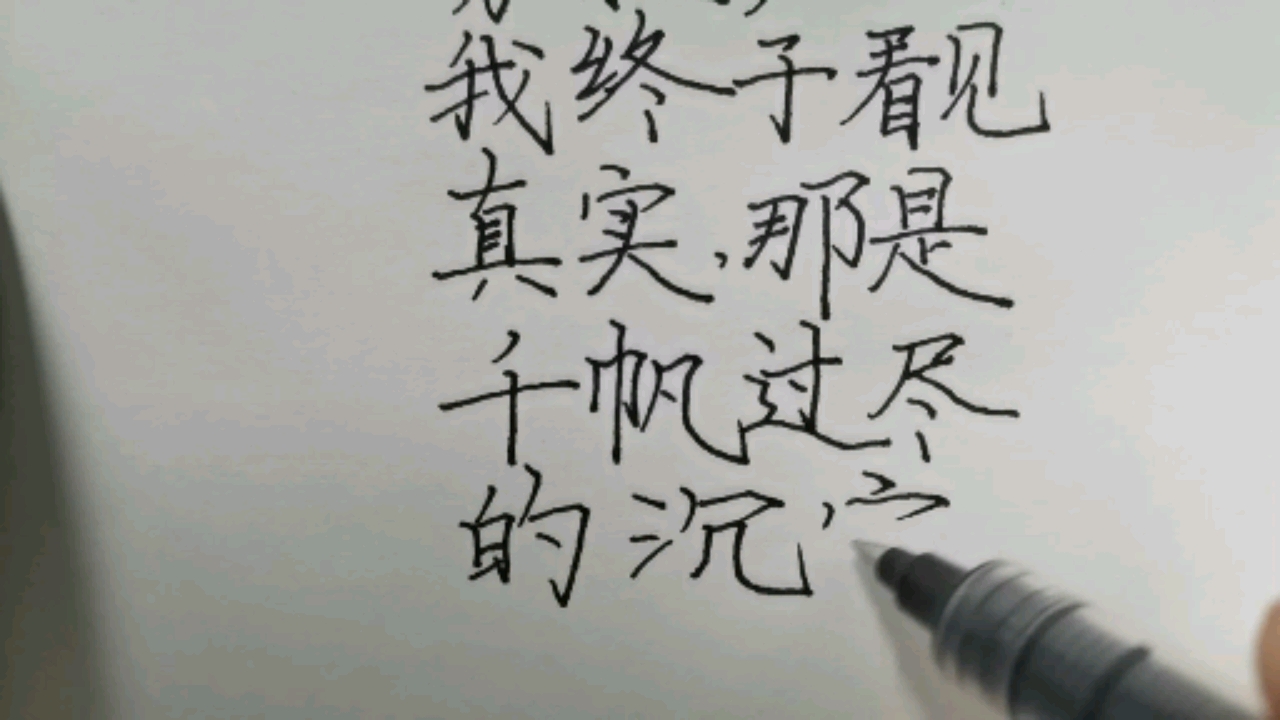 我终于看见
真实，那是
千帆过尽
的沉